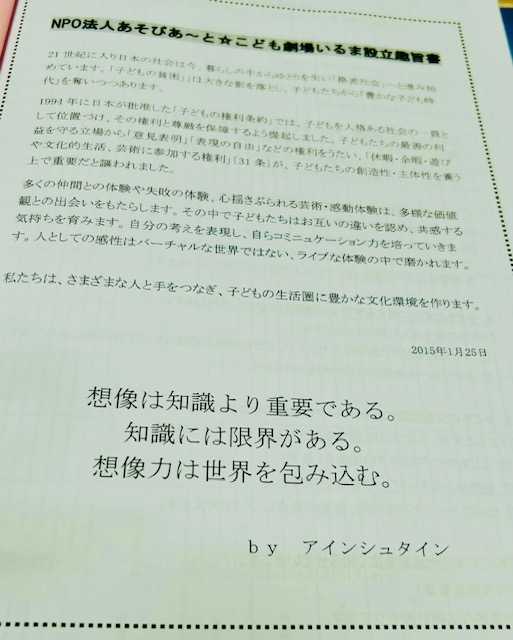 NPO法人あそびあ～と☆こども劇場いるま設立趣旨書
21世紀に入り日本の社会は今、暮らしの中からゆとりを失い「格差社会」へと進み始
めています。「子どもの貧困」は大きな影を落とし、子どもたちから「豊かな子ども時
代」を奪いつつあります。
1994年に日本が批准した「子どもの権利条約」では、子どもを人格ある社会の一員と
して位置づけ、その権利と尊厳を保障するよう提起しました。子どもたちの最善の利
益を守る立場から「意見表明」「表現の自由」などの権利をうたい、「休暇・余暇・遊び
や文化的生活、芸術に参加する権利」（31条）が、子どもたちの創造性・主体性を養う
上で重要だと謳われました。
多くの仲間との体験や失敗の体験、心揺さぶられる芸術・感動体験は、多様な価値
観との出会いをもたらします。その中で子どもたちはお互いの違いを認め、共感する
気持ちを育みます。自分の考えを表現し、自らコミュニケーション力を培っていきま
す。人としての感性はバーチャルな世界ではない、ライブな体験の中で磨かれます。
私たちは、さまざまな人と手をつなぎ、子どもの生活圏に豊かな文化環境を作ります。
2015年1月25日
想像は知識より重要である。
知識には限界がある。
想像力は世界を包み込む。
by アインシュタイン